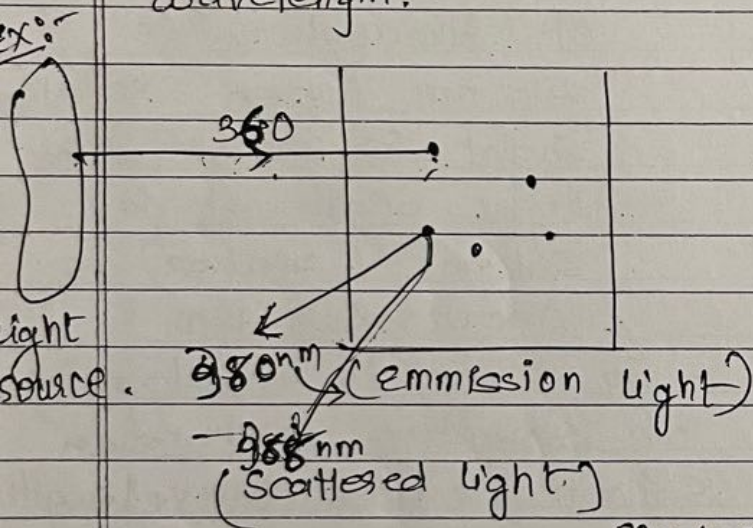 wavelength.
ex:-
360
light
source.
980nm (Emmission light)
nm
(Scattered light)